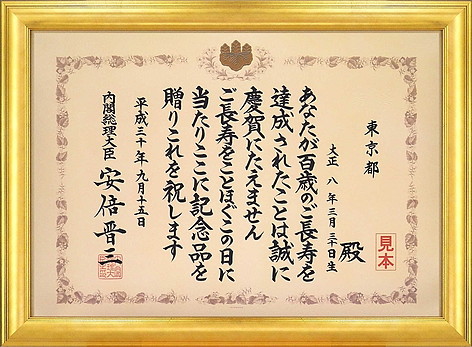 見本
東京都
殿
大正 八 年三月三十日生
あなたが百歳のご長寿を
達成されたことは誠に
慶賀にたえません
ご長寿をことほぐこの日に
当たりここに記念品を
贈りこれを祝します
平成三十年 九月十五日
内閣総理大臣 安倍晋三